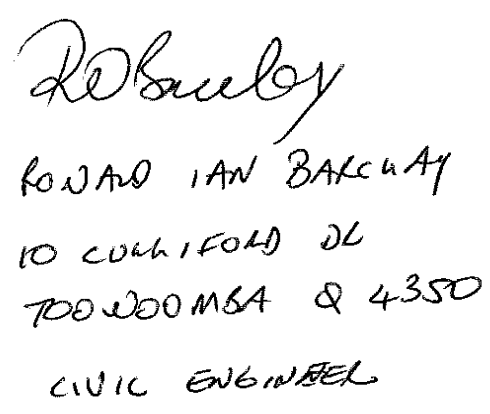 RONALD IAN BARCLAY
10 CULLIFORD DL
TOOWOOMBA Q 4350
CIVIL ENGINEER